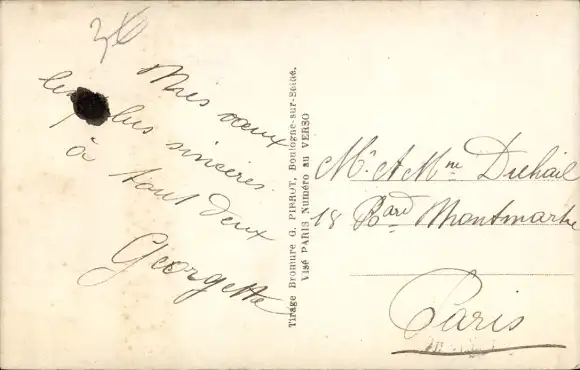 36
Mes vœux
les plus sincères
à tous deux
Georgette
Tirage Bromure G. PIRROT, Boulogne-sur-Seine.
Visé PARIS Numéro au VERSO
Mr & Mme Duhail
18 Bard Montmartre
Paris